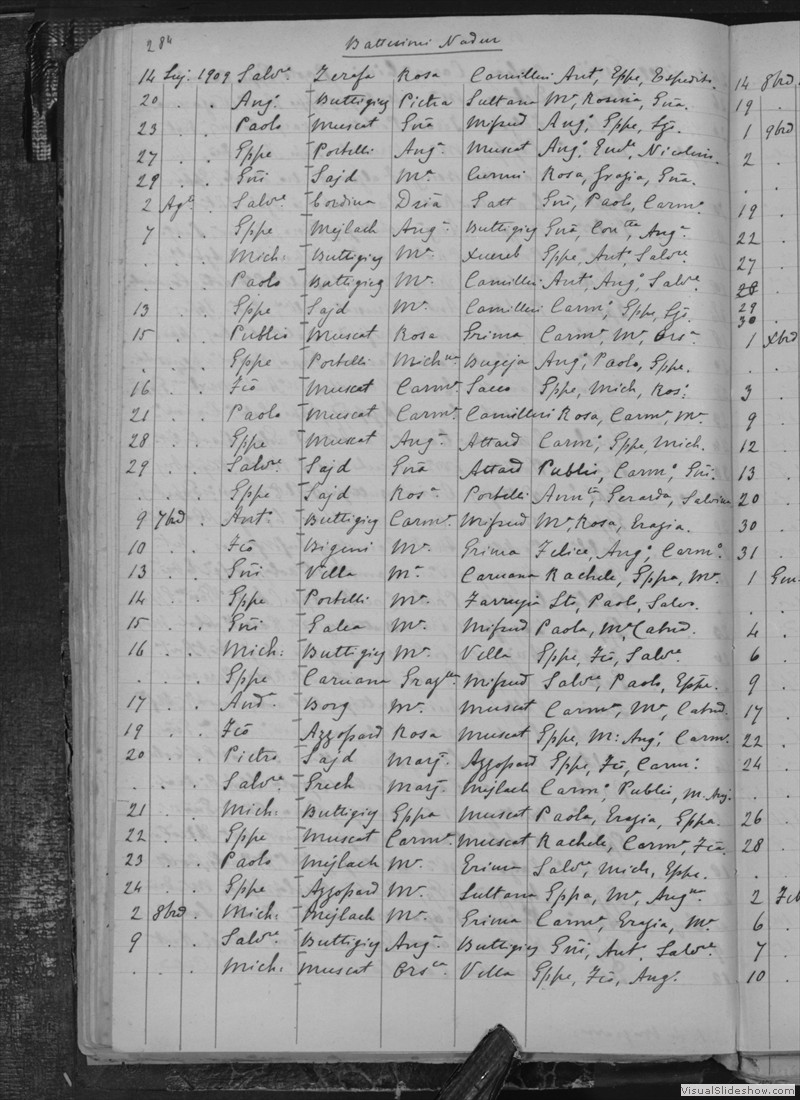 284 Battesimi Nadur
14 Lug. 1909 Salv.e Zerafa Rosa Camilleri Ant., Gppe, Espedito.
20 . . Ang.o Buttigieg Pietra Sultana M.a, Rosina, Gna.
23 . . Paolo Muscat Gna Mifsud Ang.o, Gppe,
27 . . Gppe Portelli Ang.a Muscat Ang.o
29 . . Gni Said M.a Curmi Rosa, Grazia, Gna.
2 Ag.to . Salv.e Cordina Dria Satt Gni, Paolo, Carm.o
7 . . Gppe Mejlach Ang.a Buttigieg Gna, Con.tta, Ang.a
. . . Mich: Buttigieg M.a Xuereb Gppe, Ant.o, Salv.re
. . . Paolo Buttigieg M.a Camilleri Ant.o, Ang.o, Salv.e
13 . . Gppe Said M.a Camilleri Carm.o, Gppe,
15 . . Publio Muscat Rosa Grima Carm.a, M.a, Ors.a
. . . Gppe Portelli Mich.na Bugeja Ang.o, Paolo, Gppe.
16 . . Fco Muscat Carm.a Sacco Gppe, Mich, Ros:
21 . . Paolo Muscat Carm.a Camilleri Rosa, Carm.a, M.a
28 . . Gppe Muscat Ang.a Attard Carm.o, Gppe, Mich.
29 . . Salv.re Said Gna Attard Publio, Carm.o, Gni.
. . . Gppe Said Ros.a Portelli Ann.ta, Gerarda, Salvina
9 7bre . Ant.o Buttigieg Carm.a Mifsud M.a, Rosa, Grazia.
10 . . Fco Bigeni M.a Grima Felice, Ang.o, Carm.o
13 . . Gni Vella M.a Caruana Rachele, Gppa, M.a
14 . . Gppe Portelli M.a Farrugia Sto, Paolo, Salvo.
15 . . Gni Galea M.a Mifsud Paola, M.a,
16 . . Mich: Buttigieg M.a Vella Gppe, Fco, Salv.e
. . . Gppe Caruana Graz.lla Mifsud Salv.e, Paolo, Gppe.
17 . . And. Borg M.a Muscat Carm.a, M.a,
19 . . Fco Azzopard Rosa Muscat Gppe, M: Ang.o, Carm.o
20 . . Pietro Said Marg. Azzopard Gppe, Fco, Carm:
. . . Salv.e Grech Marg. Mejlach Carm.o, Publio, M. Ang.
21 . . Mich: Buttigieg Gppa Muscat Paola, Grazia, Gppa.
22 . . Gppe Muscat Carm.a Muscat Rachele, Carm.a, Fca.
23 . . Paolo Mejlach M.a Grima Salv.e, Mich, Gppe.
24 . . Gppe Azzopard M.a Sultana Gppa, M.a, Ang.na
2 8bre . Mich: Mejlach M.a Grima Carm.a, Grazia, M.a
9 . . Salv.e Buttigieg Ang.a Buttigieg Gni, Ant.o, Salv.e
. . . Mich: Muscat Ors.la Vella Gppe, Fco, Ang.o
14 8bre.
19 .
1 9bre
2 .
. .
19 .
22 .
27 .
28 .
29
30 .
1 Xbre
. .
3 .
9 .
12 .
13 .
20 .
30 .
31 .
1 Gen.
. .
4 .
6 .
9 .
17 .
22 .
24 .
. .
26 .
28 .
. .
2 Feb
6 .
7 .
10 .
VisualSlideshow.com